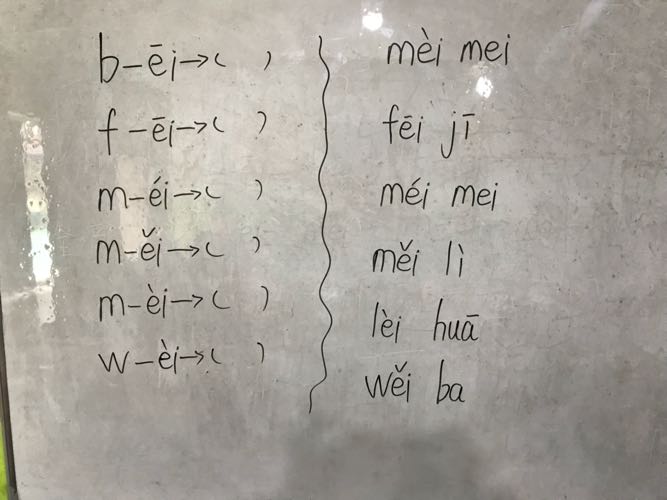 b-ēi→( )
f-ēi→( )
m-éi→( )
m-ěi→( )
m-èi→( )
w-èi→( )
mèi mei
fēi jī
méi mei
měi lì
lèi huā
wěi ba